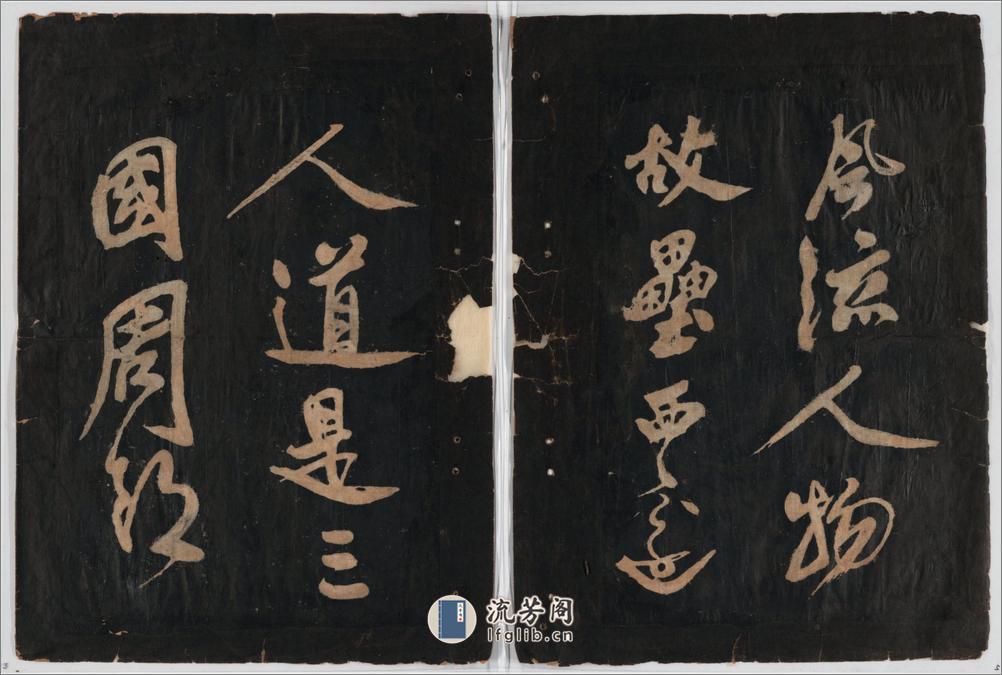 風流人物
故壘西邊
人道是三
國周郎
流芳阁
lfglib.cn